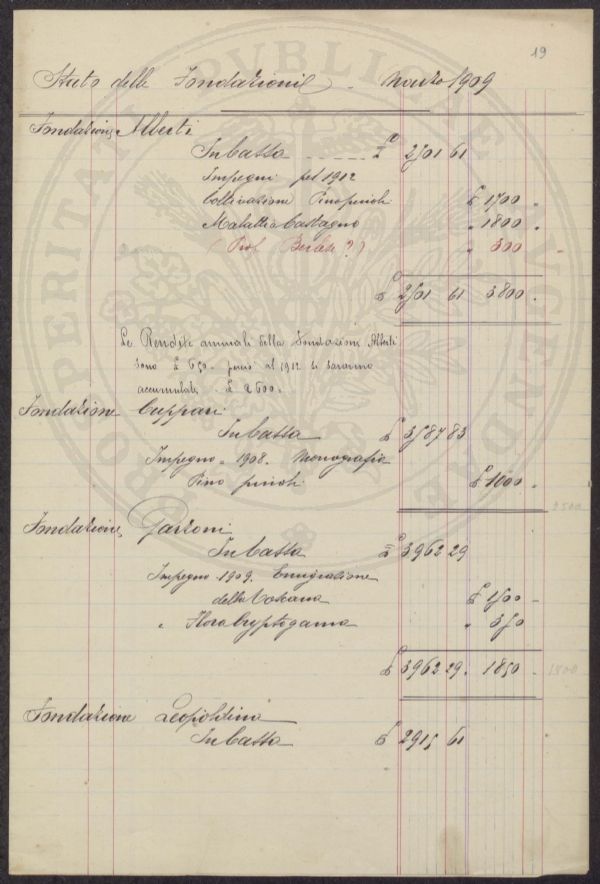 19
Stato delle Fondazioni - Marzo 1909
Fondazione Alberti
In Cassa ---- £ 2501 61
Impegni pel 1912
Coltivazione Pino pinoli £ 1700 "
Malattia Castagno " 1800 "
(Prof. Berlese?) " 300 "
£ 2501 61 3800 "
Le Rendite annuali della Fondazione Alberti
sono £ 650 - perciò al 1912 si saranno
accumulate £ 2600 =
Fondazione Cuppari
In Cassa £ 3587 83
Impegno " 1908. Monografia
Pino pinoli £ 1000 "
2500
Fondazione Garzoni
In Cassa £ 3962 29
Impegno 1909. Emigrazione
della Toscana £ 1500 -
" Flora Cryptogama " 350
£ 3962 29. 1850 - 1500
Fondazione Leopoldina
In Cassa £ 2915 61
PRO PERITAN PUBLICAE AUGENDAE